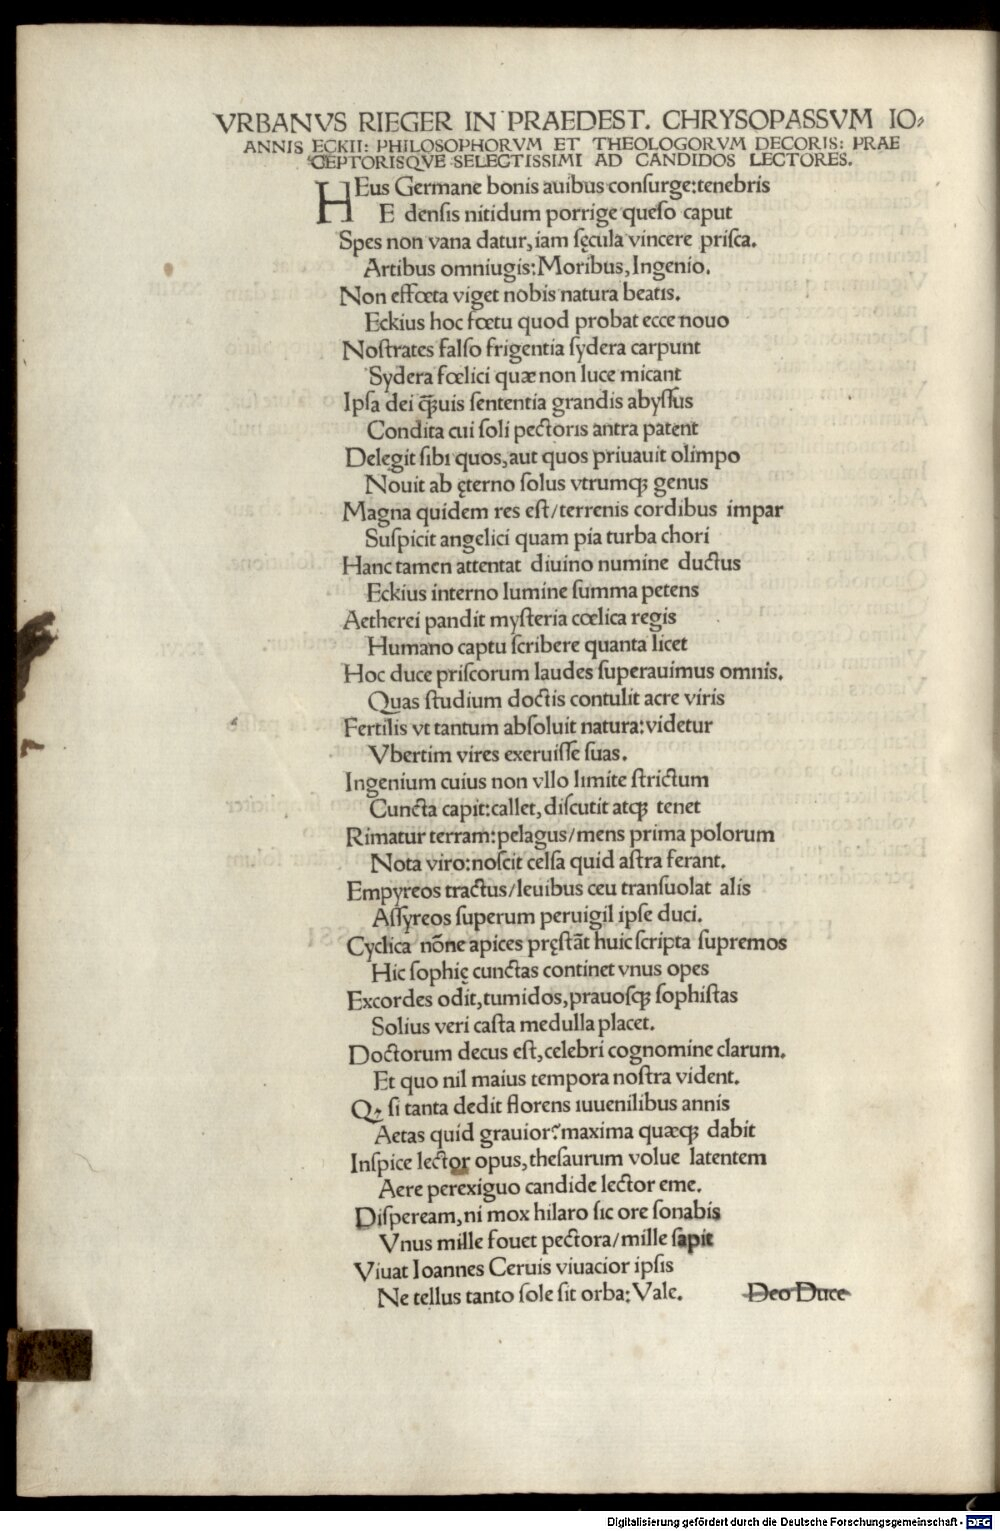 VRBANVS RIEGER IN PRAEDEST. CHRYSOPASSVM IO⸗
ANNIS ECKII: PHILOSOPHORVM ET THEOLOGORVM DECORIS: PRAE
CEPTORISQVE SELECTISSIMI AD CANDIDOS LECTORES.
HEus Germane bonis auibus conſurge:tenebris
E denſis nitidum porrige queſo caput
Spes non vana datur,iam ſęcula vincere priſca.
Artibus omniugis:Moribus,Ingenio.
Non effœta viget nobis natura beatis.
Eckius hoc fœtu quod probat ecce nouo
Noſtrates falſo frigentia ſydera carpunt
Sydera fœlici quæ non luce micant
Ipſa dei q̃ꝫuis ſententia grandis abyſſus
Condita cui ſoli pectoris antra patent
Delegit ſibi quos,aut quos priuauit olimpo
Nouit ab ęterno ſolus vtrumqꝫ genus
Magna quidem res eſt/terrenis cordibus impar
Suſpicit angelici quam pia turba chori
Hanc tamen attentat diuino numine ductus
Eckius interno lumine ſumma petens
Aetherei pandit myſteria cœlica regis
Humano captu ſcribere quanta licet
Hoc duce priſcorum laudes ſuperauimus omnis.
Quas ſtudium doctis contulit acre viris
Fertilis vt tantum abſoluit natura:videtur
Vbertim vires exeruiſſe ſuas.
Ingenium cuius non vllo limite ſtrictum
Cuncta capit:callet,diſcutit atqꝫ tenet
Rimatur terram:pelagus/mens prima polorum
Nota viro:noſcit celſa quid aſtra ferant.
Empyreos tractus/leuibus ceu tranſuolat alis
Aſſyreos ſuperum peruigil ipſe duci.
Cyclica nõne apices pręſtãt huic ſcripta ſupremos
Hic ſophię cunctas continet vnus opes
Excordes odit,tumidos,prauoſqꝫ ſophiſtas
Solius veri caſta medulla placet.
Doctorum decus eſt,celebri cognomine clarum.
Et quo nil maius tempora noſtra vident.
Qꝫ ſi tanta dedit florens iuuenilibus annis
Aetas quid grauior?maxima quæqꝫ dabit
Inſpice lector opus,theſaurum volue latentem
Aere perexiguo candide lector eme.
Diſpeream,ni mox hilaro ſic ore ſonabis
Vnus mille fouet pectora/mille ſapit
Viuat Ioannes Ceruis viuacior ipſis
Ne tellus tanto ſole ſit orba:Vale. Deo Duce
Digitalisierung gefördert durch die Deutsche Forschungsgemeinschaft - DFG